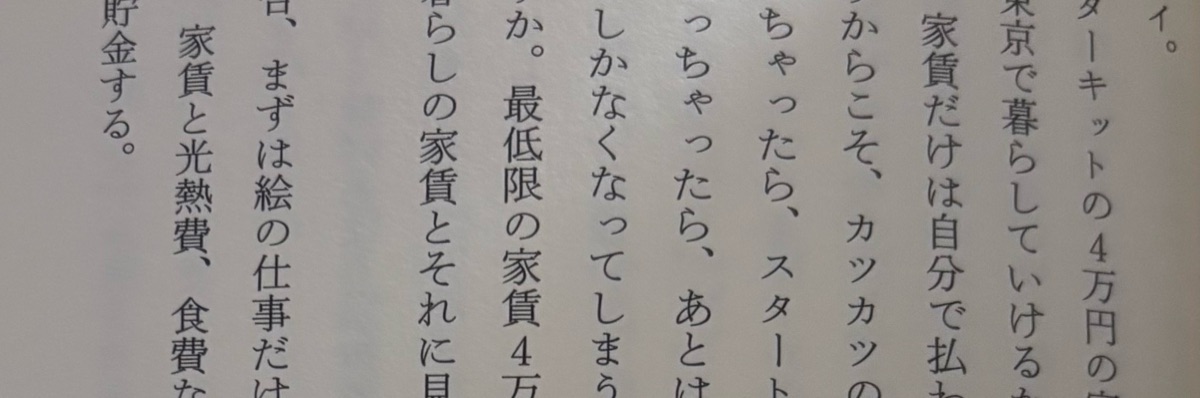 イ。
ターキットの4万円の
東京で暮らしていけるか
家賃だけは自分で払わ
からこそ、カツカツの
ちゃったら、スタート
っちゃったら、あとは
しかなくなってしまう
か。最低限の家賃4万
暮らしの家賃とそれに見
、まずは絵の仕事だけ
家賃と光熱費、食費な
貯金する。